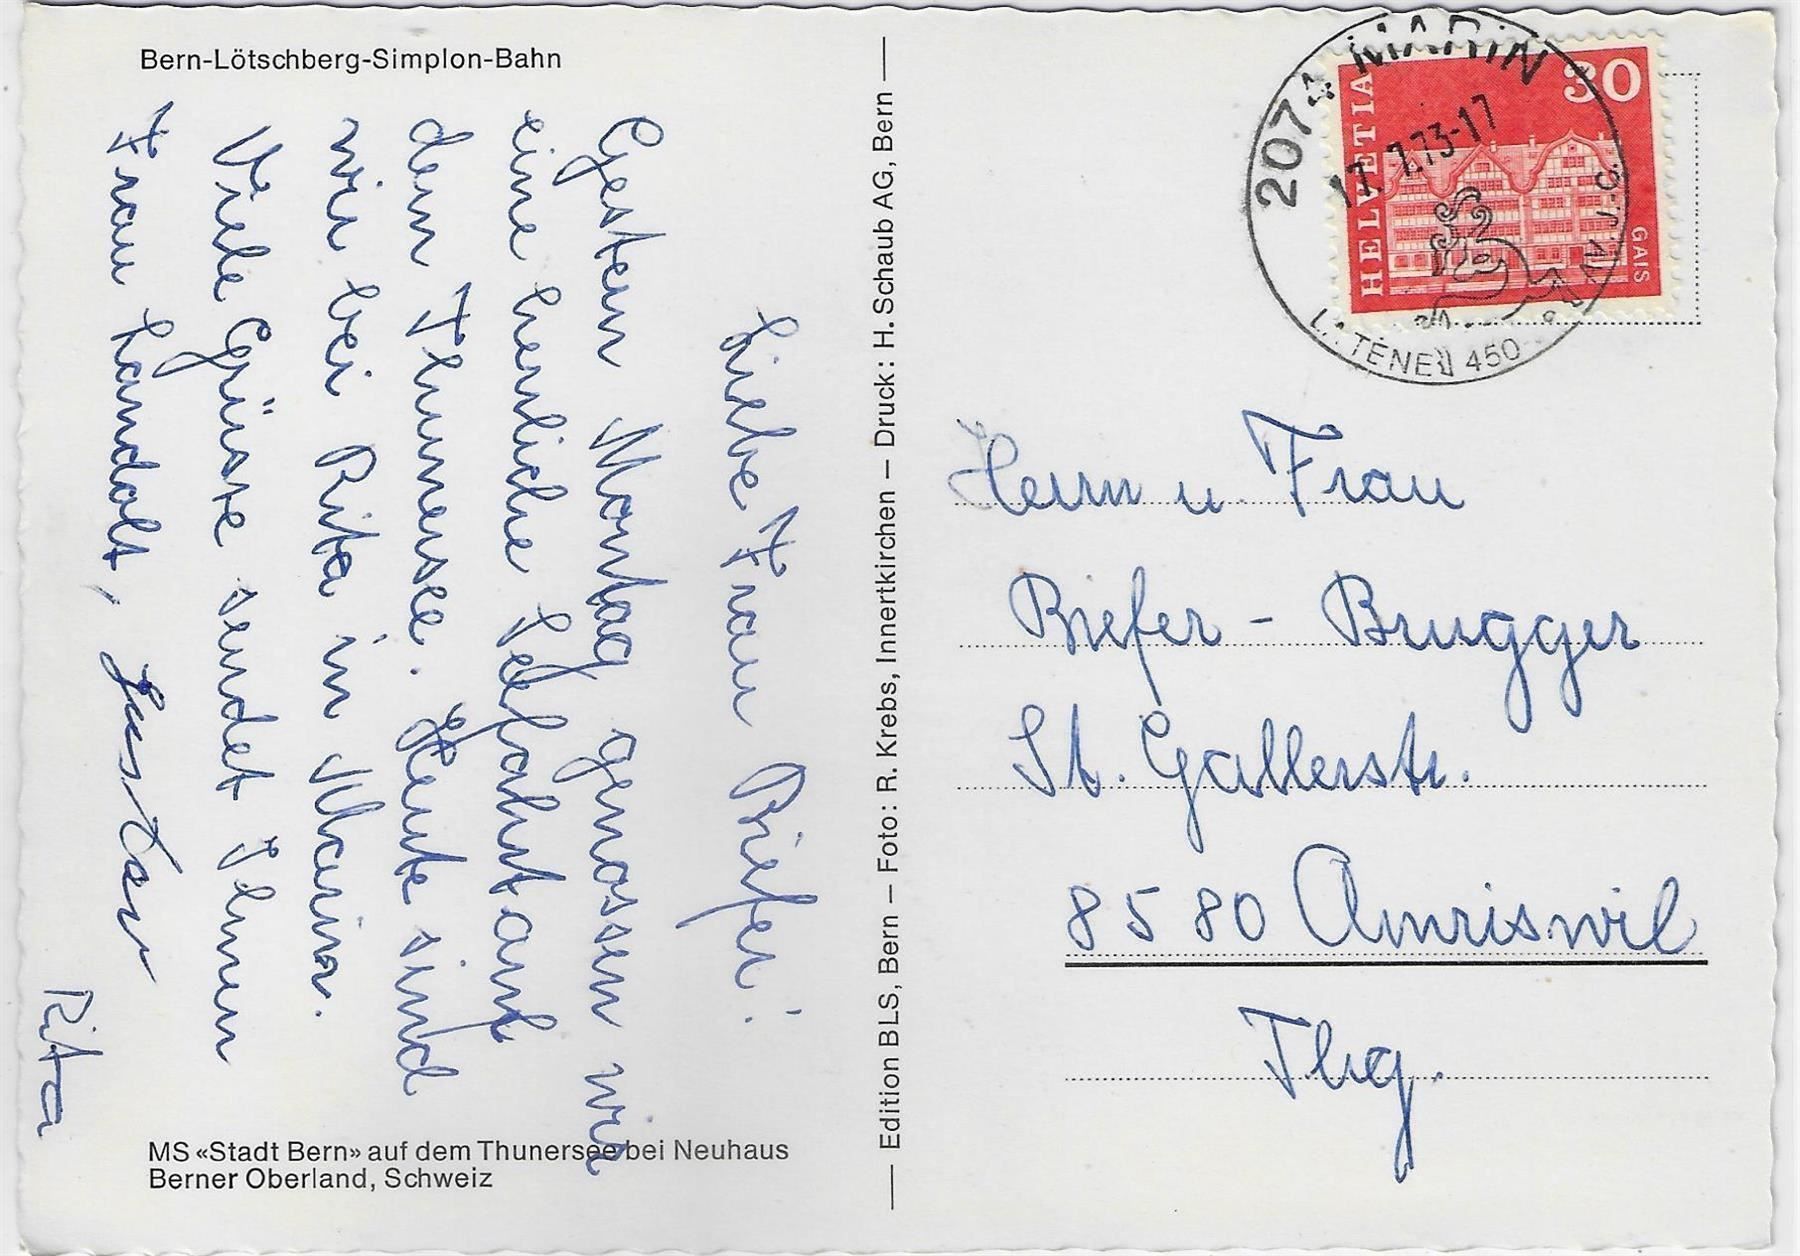 Bern-Lötschberg-Simplon-Bahn
Liebe Frau Biefer!
Gestern Montag genossen wir
eine herrliche Seefahrt auf
dem Thunersee. Heute sind
wir bei Rita in Marin.
Viele Grüsse sendet Ihnen
Frau Landolt,
Rita
MS «Stadt Bern» auf dem Thunersee bei Neuhaus
Berner Oberland, Schweiz
Edition BLS, Bern – Foto: R. Krebs, Innertkirchen – Druck: H. Schaub AG, Bern
2074 MARIN
17. 7.73-17
LA TENE 450
HELVETIA
30
GAIS
Herrn u. Frau
Biefer - Brugger
St. Gallerstr.
8580 Amriswil
Thg.